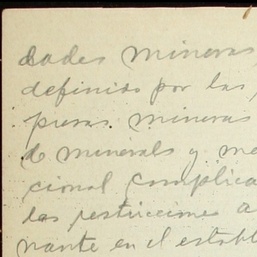 dades mineras
definido por las
presas mineras
de minerals y me
cional complica
las restricciones a
nante en el establ